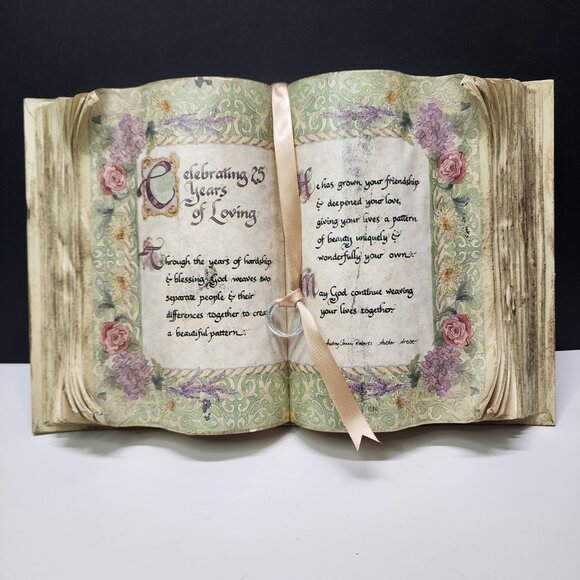 Celebrating 25
Years
of Loving
Through the years of hardship
& blessing God weaves two
separate people & their
differences together to crea
a beautiful pattern.
He has grown your friendship
& deepened your love,
giving your lives a pattern
of beauty uniquely &
wonderfully your own.
May God continue weaving
your lives together.
Audrey Jeanne Roberts Author Artist